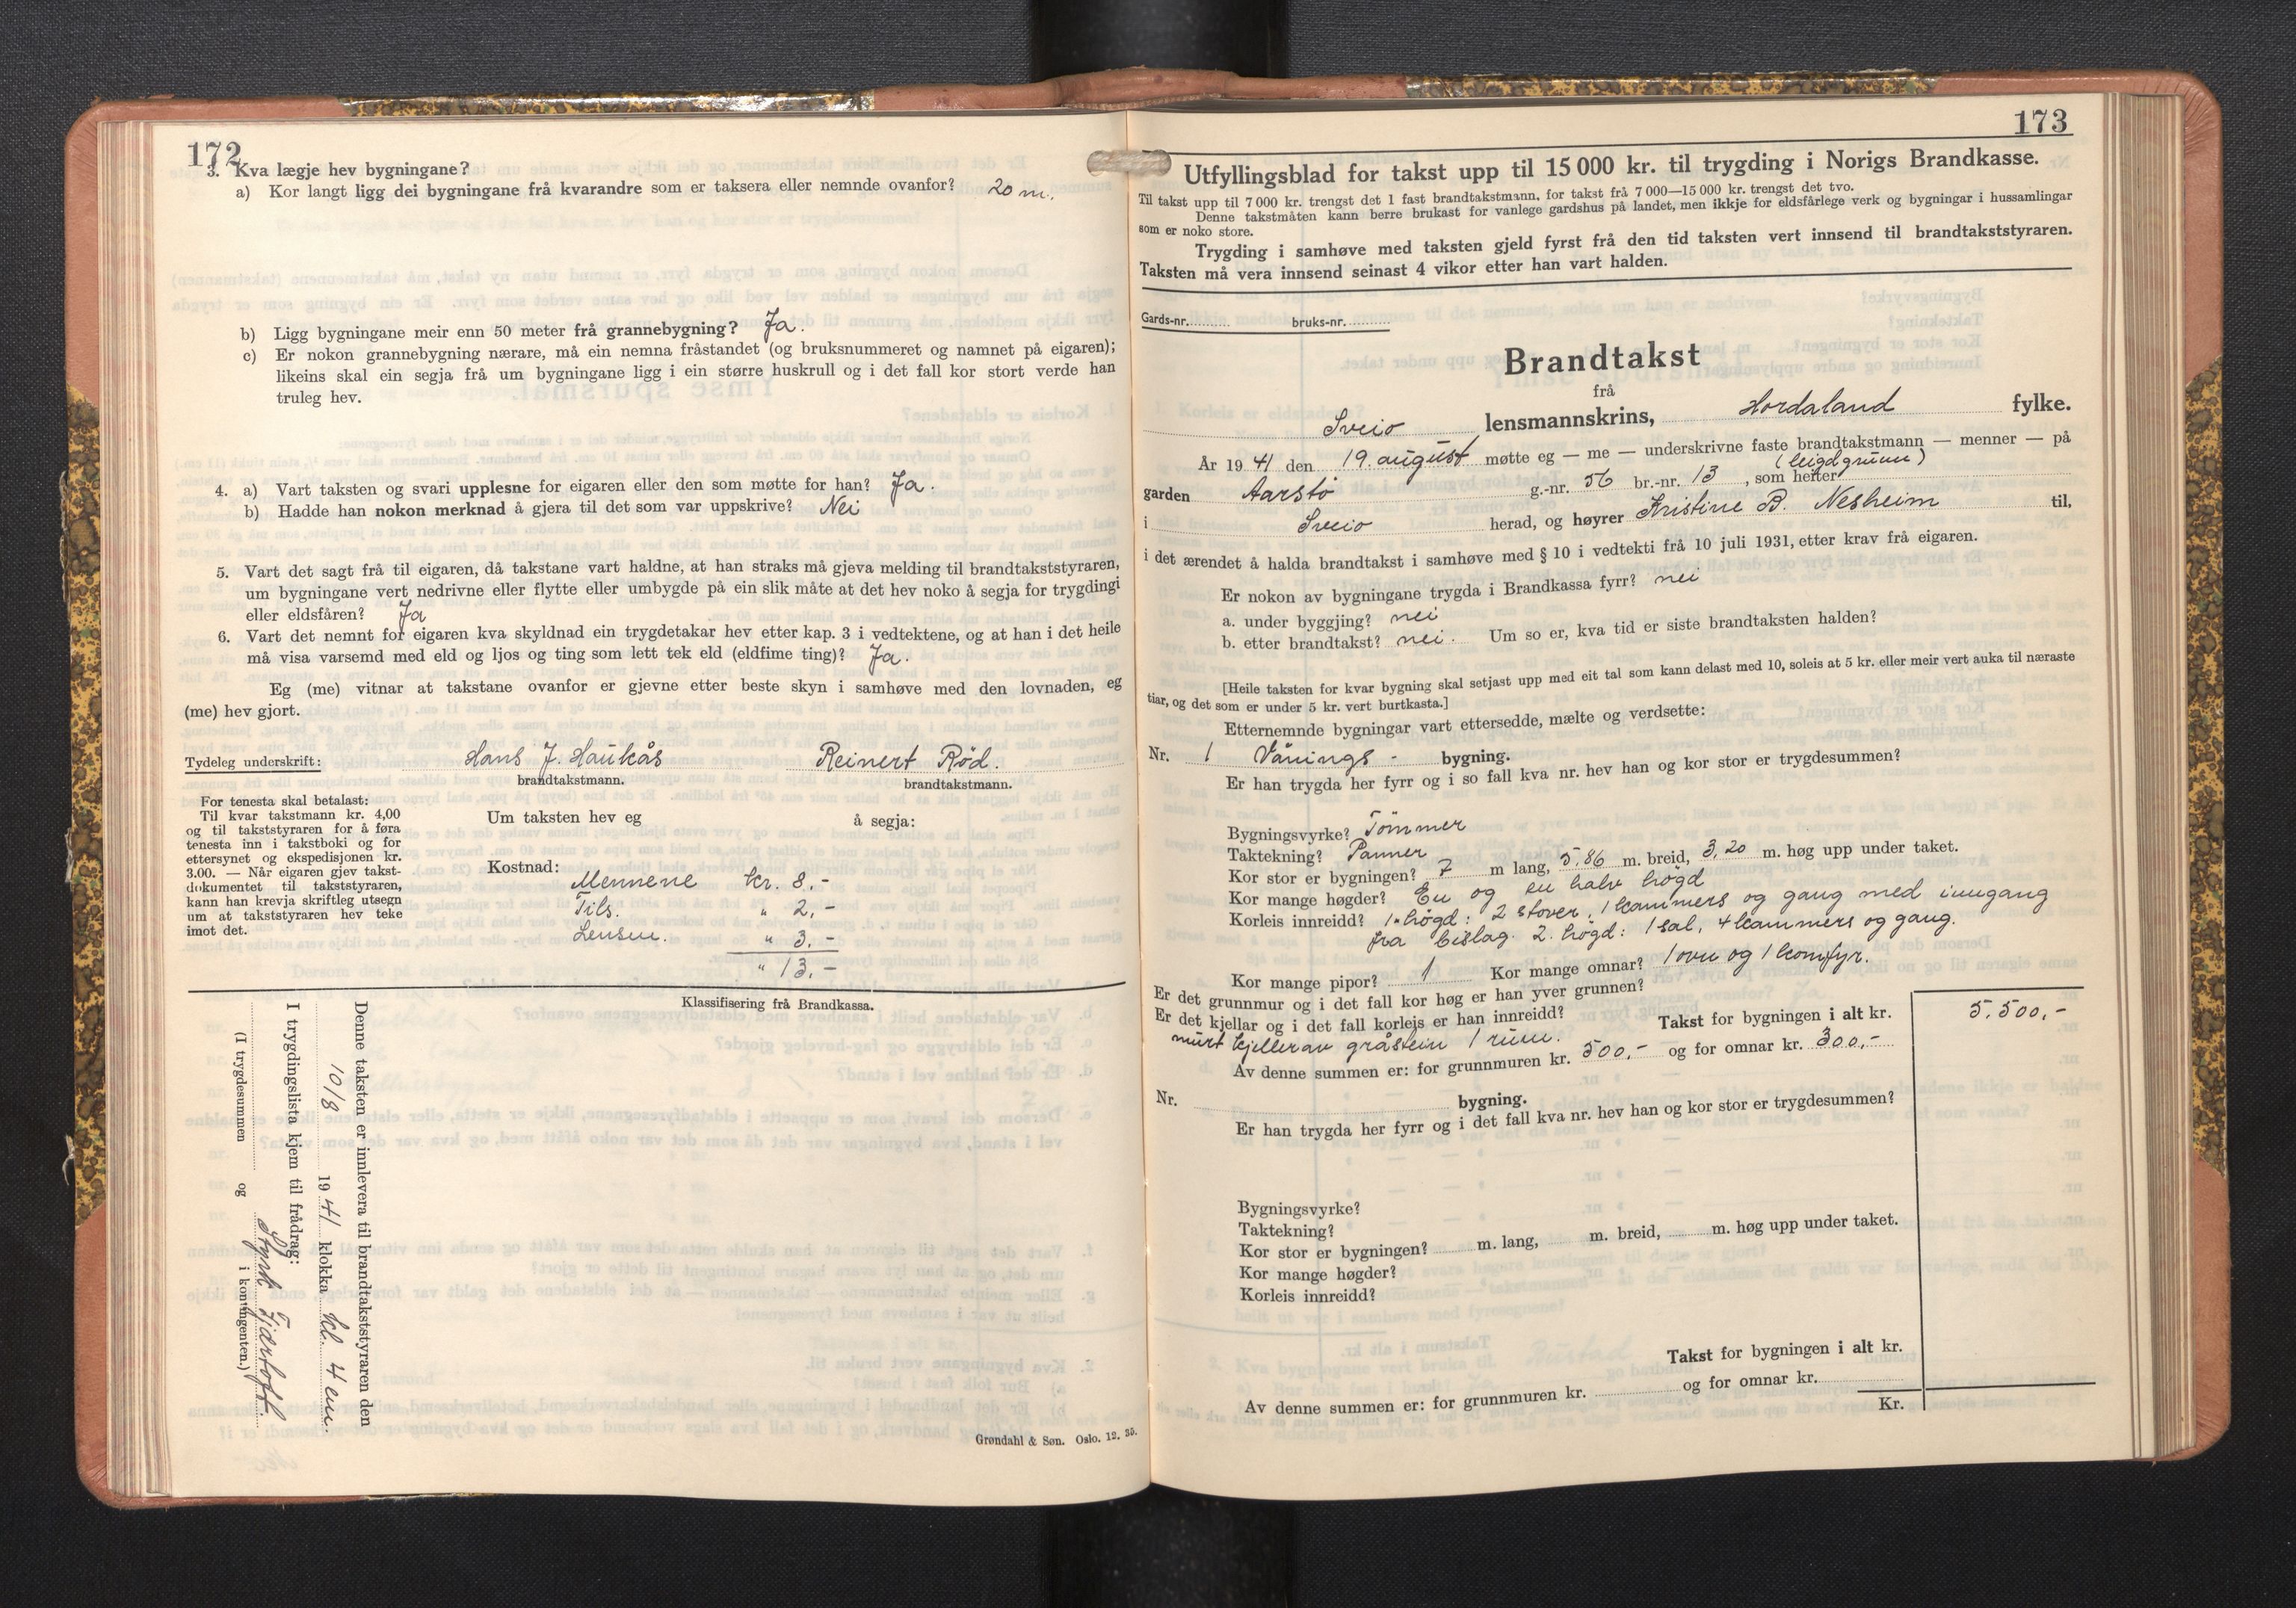 172
3. Kva lægje hev bygningane?
a) Kor langt ligg dei bygningane frå kvarandre som er taksera eller nemnde ovanfor? 20 m.
b) Ligg bygningane meir enn 50 meter frå grannebygning? Ja.
c) Er nokon grannebygning nærare, må ein nemna fråstandet (og bruksnummeret og namnet på eigaren);
likeins skal ein segja frå um bygningane ligg i ein større huskrull og i det fall kor stort verde han
truleg hev.
4. a) Vart taksten og svari upplesne for eigaren eller den som møtte for han? Ja.
b) Hadde han nokon merknad å gjera til det som var uppskrive? Nei
5. Vart det sagt frå til eigaren, då takstane vart haldne, at han straks må gjeva melding til brandtakststyraren,
um bygningane vert nedrivne eller flytte eller umbygde på ein slik måte at det hev noko å segja for trygdingi
eller eldsfåren? Ja
6. Vart det nemnt for eigaren kva skyldnad ein trygdetakar hev etter kap. 3 i vedtektene, og at han i det heile
må visa varsemd med eld og ljos og ting som lett tek eld (eldfime ting)? Ja.
Eg (me) vitnar at takstane ovanfor er gjevne etter beste skyn i samhøve med den lovnaden, eg
(me) hev gjort.
Tydeleg underskrift: Hans J. Haukås Reinert Rød.
brandtakstmann. brandtakstmann.
For tenesta skal betalast:
Til kvar takstmann kr. 4,00
og til takststyraren for å føra
tenesta inn i takstboki og for
ettersynet og ekspedisjonen kr.
3.00. — Når eigaren gjev takst-
dokumentet til takststyraren,
kann han krevja skriftleg utsegn
um at takststyraren hev teke
imot det.
Um taksten hev eg å segja:
Kostnad:
Mennene kr. 8,-
Tils. " 2,-
Lensm. " 3,-
" 13,-
Klassifisering frå Brandkassa.
Denne taksten er innlevera til brandtakststyraren den
10/8 1941 klokka kl. 4 em.
I trygdingslista kjem til frådrag:
(I trygdesummen og i kontingenten.)
Fjærtoft.
Grøndahl & Søn. Oslo. 12. 35.
173
Utfyllingsblad for takst upp til 15 000 kr. til trygding i Norigs Brandkasse.
Til takst upp til 7 000 kr. trengst det 1 fast brandtakstmann, for takst frå 7 000—15 000 kr. trengst det tvo.
Denne takstmåten kann berre brukast for vanlege gardshus på landet, men ikkje for eldsfårlege verk og bygningar i hussamlingar
som er noko store.
Trygding i samhøve med taksten gjeld fyrst frå den tid taksten vert innsend til brandtakststyraren.
Taksten må vera innsend seinast 4 vikor etter han vart halden.
Gards-nr. bruks-nr.
Brandtakst
frå
Sveio lensmannskrins, Hordaland fylke.
År 1941 den 19. august møtte eg — me — underskrivne faste brandtakstmann — menner — på
(leigdgrunn)
garden Aarstø g.-nr. 56 br.-nr. 13, som heiter
i Sveio herad, og høyrer Kristine B. Nesheim til,
i det ærendet å halda brandtakst i samhøve med § 10 i vedtekti frå 10 juli 1931, etter krav frå eigaren.
Er nokon av bygningane trygda i Brandkassa fyrr? nei
a. under byggjing? nei
b. etter brandtakst? nei. Um so er, kva tid er siste brandtaksten halden?
[Heile taksten for kvar bygning skal setjast upp med eit tal som kann delast med 10, soleis at 5 kr. eller meir vert auka til næraste
tiar, og det som er under 5 kr. vert burtkasta.]
Etternemnde bygningar vart ettersedde, mælte og verdsette:
Nr. 1 Vånings- bygning.
Er han trygda her fyrr og i so fall kva nr. hev han og kor stor er trygdesummen?
Bygningsvyrke? Tömmer
Taktekning? Panner
Kor stor er bygningen? 7 m lang, 5,86 m. breid, 3,20 m. høg upp under taket.
Kor mange høgder? En og en halv högd
Korleis innreidd? 1. högd: 2 stover, 1 kammers og gang med inngang
fra bislag. 2. högd: 1 sal, 4 kammers og gang.
Kor mange pipor? 1 Kor mange omnar? 1 ovn og 1 komfyr.
Er det grunnmur og i det fall kor høg er han yver grunnen?
Er det kjellar og i det fall korleis er han innreidd? Takst for bygningen i alt kr. 5.500,-
murt kjeller av gråstein 1 rum.
Av denne summen er: for grunnmuren kr. 500,- og for omnar kr. 300,-
Nr. bygning.
Er han trygda her fyrr og i det fall kva nr. hev han og kor stor er trygdesummen?
Bygningsvyrke?
Taktekning?
Kor stor er bygningen? m. lang, m. breid, m. høg upp under taket.
Kor mange høgder?
Korleis innreidd?
Takst for bygningen i alt kr.
Av denne summen er: for grunnmuren kr. og for omnar kr.
Kr.